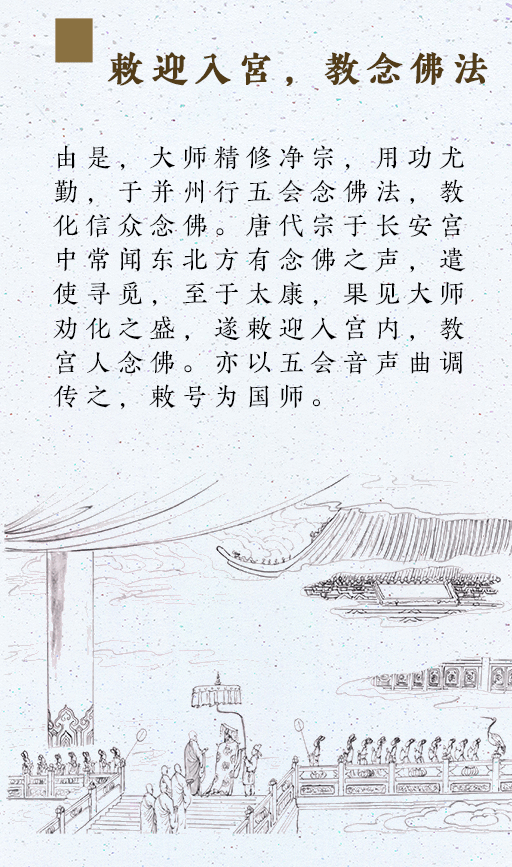 敕迎入宫，教念佛法
由是，大师精修净宗，用功尤
勤，于并州行五会念佛法，教
化信众念佛。唐代宗于长安宫
中常闻东北方有念佛之声，遣
使寻觅，至于太康，果见大师
劝化之盛，遂敕迎入宫内，教
宫人念佛。亦以五会音声曲调
传之，敕号为国师。